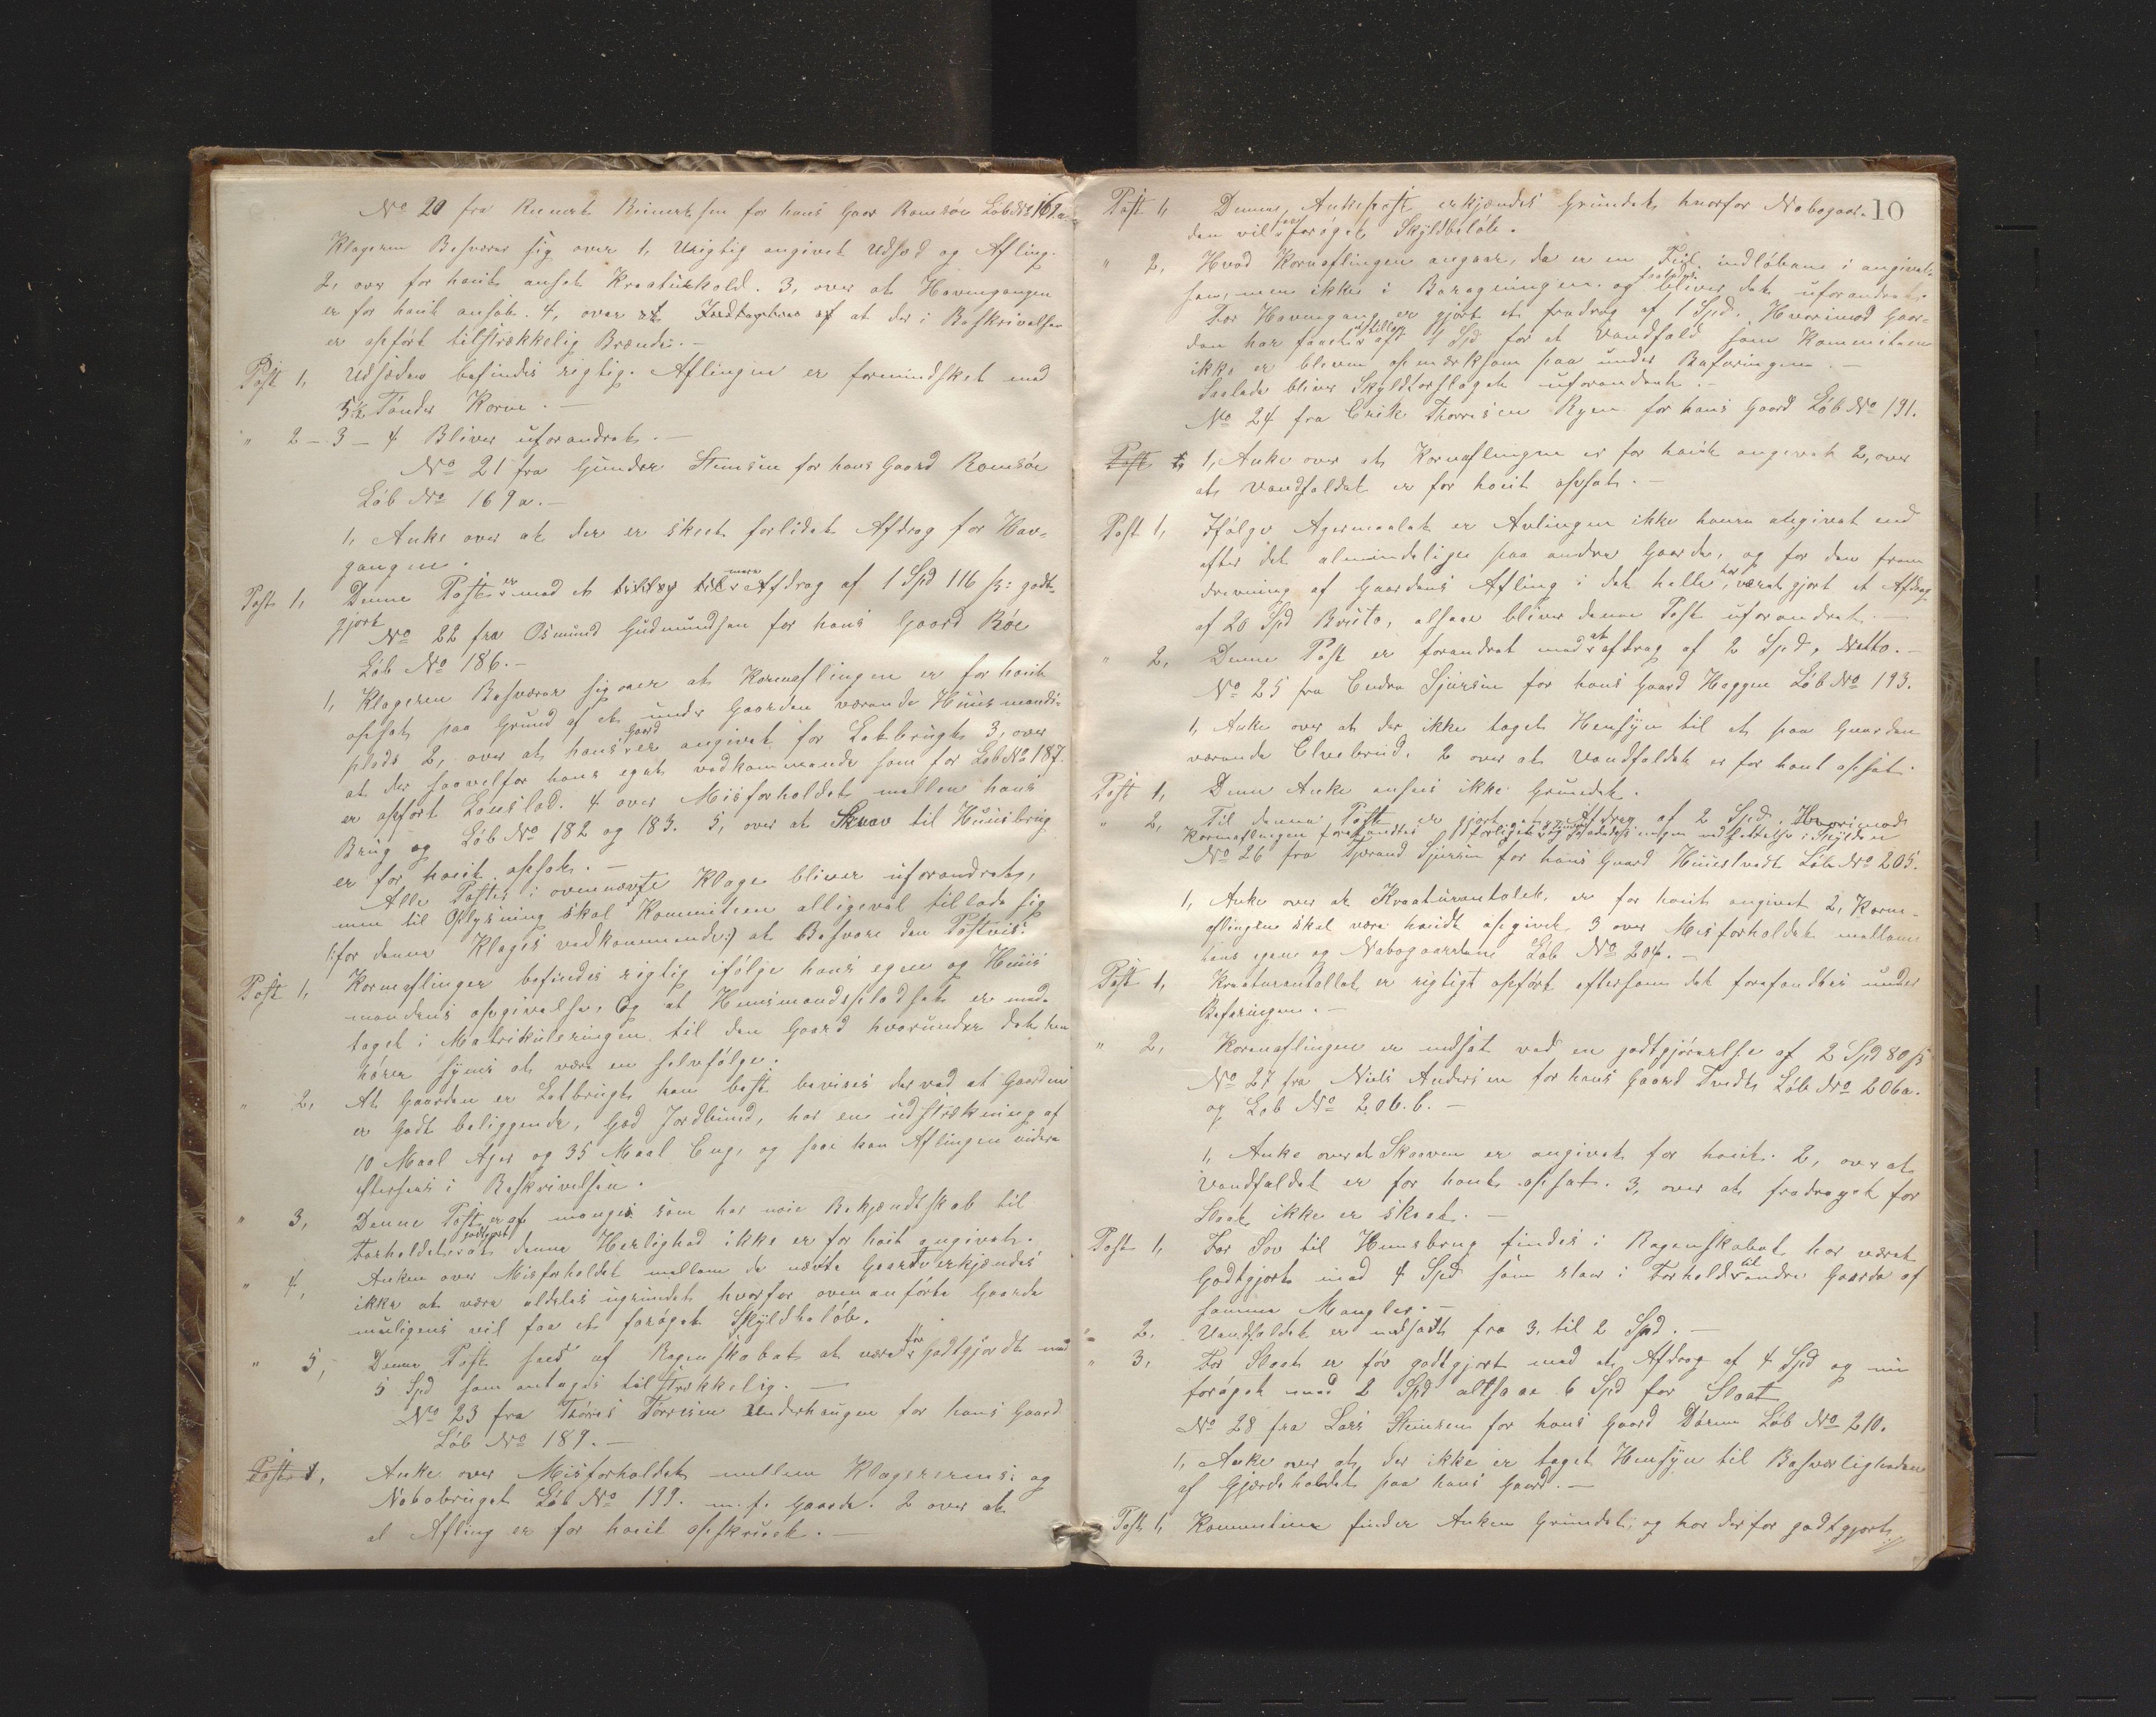 No 20 fra Reinert Reinertsen for hans Gaar Romsøe Løb No 169 a.
Klageren Besværer sig over 1, Urigtig angivet Udsæd og Afling.
2, over for høit ansat Kreaturhold. 3, over at Havnegangen
er for høit ansat. 4, over at der i Beskrivelsen
er opført tilstrækkelig Brænde.-
Post 1, Udsæden befindes rigtig. Aflingen er formindsket med
5½ Tønder Korn.-
" 2-3-4 Bliver uforandret.-
No 21 fra Gunder Stensen for hans Gaard Romsøe
Løb No 169 a.-
1, Anke over at der er skeet forlidet Afdrag for Hav-
gangen.
Post 1, Denne Post er med et mere Afdrag af 1 Spd 116 ß: godt-
gjort
No 22 fra Osmund Gudmundsen for hans Gaard Røe
Løb No 186.-
1, Klageren Besværer sig over at Kornaflingen er for høit
opsat paa Grund af et under Gaarden værende Huusmands-
plads 2, over at hans Gaard er angivet for Letbrugt 3, over
at der saavelfor hans eget vedkommende som for Løb No 187.
er opført Løvslod. 4 over Misforholdet mellem hans
Brug og Løb No 182 og 183. 5, over at Skov til Huusbrug
er for høit opsat.-
Alle Poster i ovennævnte Klage bliver uforandret,
men til Oplysning skal Kommiteen alligevel tillade sig
/:for denne Klages vedkommende:/ at Besvare den Postvis:
Post 1, Kornaflingen befindes rigtig ifølge hans egen og Huus
mandens opgivelse, Og at Huusmandspladset er med-
taget i Matrikuleringen til den Gaard hvorunder det hen
hører synes at være en selvfølge.
" 2, At Gaarden er Letbrugt kan best bevises derved at Gaarden
er godt beliggende, God Jordbund, har en udstrækning af
10 Maal Ager og 35 Maal Eng, og saa kan Aflingen videre
eftersees i Beskrivelsen.
" 3, Denne Post er af mange som har nøie Bekjendtskab til
Forholdet godtgjort at denne Herlighed ikke er for høit angivet.
" 4, Anken over Misforholdet mellem de nævnte Gaarde erkjendes
ikke at være aldeles ugrundet hvorfor ovenanførte Gaarde
muligens vil faa et forøget Skyldbeløb.
" 5, Denne Post sees af Regenskabet at være før Godtgjordt med
5 Spd som antages tilstrækkelig.-
No 23 fra Thörres Törresen Underhaugen for hans Gaard
Løb No 189.-
Post 1, Anke over Misforholdet mellem Klagerens og
Nabobruget Løb No 199. m. f. Gaarde. 2 over at
at Afling er for høit opskruet.-
10
Post 1, Denne Ankepost erkjendes Grundet hvorfor Nabogaar-
den vil faa forøget Skyldbeløb.
" 2, Hvad Kornaflingen angaar, da er en Feil indløbene i angivel-
sen, men ikke i Beregningen og bliver det uforandret.
For Havnegang er gjort et fradrag af 1 Spd. Hvorimod Gaar-
den har faaet et tillæg af 1 Spd for et Vandfald som Kommiteen
ikke er bleven opmerksom paa under Befaringen.-
Saalede bliver Skyldforslaget uforandret.-
No 24 fra Erik Thorresen Ryen for hans Gaard Løb No 191.
Post 1, 1, Anke over at Kornaflingen er for høit angivet 2, over
at Vandfaldet er for høit opsat.-
Post 1, Ifølge Agermaalet er Avlingen ikke høiere opgivet end
efter det almindelige paa andre Gaarde, og for den frem
drivning af Gaardens Afling i det hele har været gjort et Afdrag
af 20 Spd Bruto, altsaa bliver denne Post uforandret.-
" 2, Denne Post er forandret med et aftrag af 2 Spd, Netto.-
No 25 fra Endre Sjursen for hans Gaard Heggen Løb No 193.
1, Anke over at der ikke taget Hensyn til et paa Gaarden
værende Elvebrud. 2 over at Vandfaldet er for høit opsat.
Post 1, Denne Anke ansees ikke Grundet.
" 2, Til denne Post er gjort et Afdrag af 2 Spd. Hvorimod
Kornaflingen forefandtes forliget ved Skylden
No 26 fra Tjerand Sjursen for hans Gaard Huustvedt Løb No 205.
1, Anke over at Kreaturantalet er for høit angivet 2, Korn-
aflingen skal være høidt opgivet 3 over Misforholdet mellem
hans egen og Nabogaardens Løb No 204.-
Post 1, Kreaturantallet er rigtigt opført eftersom det forefandtes under
Befaringen.-
" 2, Kornaflingen er nedsat ved en godtgjørelse af 2 Spd 80 ß
No 27 fra Niels Andersen for hans Gaard Tvedt Løb No 206a.
og Løb No 206. b.-
1, Anke over at Skoven er angivet for høit. 2, over at
Vandfaldet er for høit opsat. 3, over at fradraget for
Sloat ikke er skeet.-
Post 1, For Sov til Huusbrug findes i Regenskabet har været
Godtgjort med 4 Spd som staar i Forhold til andre Gaarde af
samme Mangler.-
" 2. Vandfaldet er nedsadt fra 3, til 2 Spd.-
" 3, For Sloat er før godtgjort med et Afdrag af 4 Spd og nu
forøget med 2 Spd altsaa 6 Spd for Sloat
No 28 fra Lars Steinsen for hans Gaard Dörum Løb No 210.
1, Anke over at der ikke er taget Hensyn til Besværligheden
af Gjærdeholdet paa hans Gaard.-
Post 1, Kommiteen finder Anken Grundet, og har derfor godtgjort